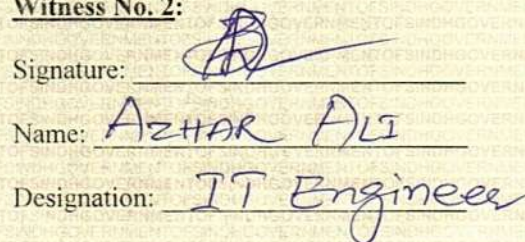 Witness No. 2:
Signature:
Name: AZHAR ALI
Designation: IT Engineer